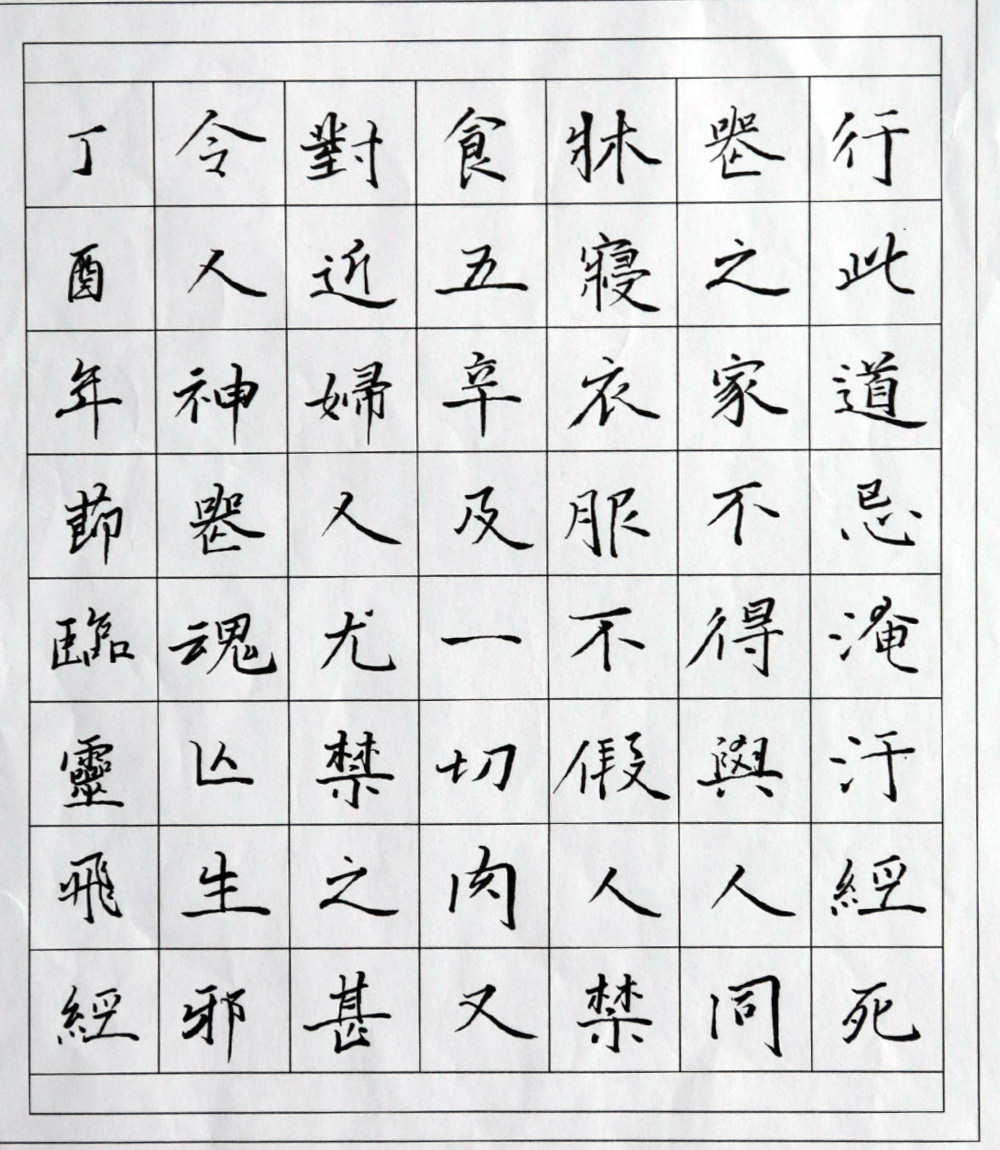 行此道忌淹汙經死
喪之家不得與人同
牀寢衣服不假人禁
食五辛及一切肉又
對近婦人尤禁之甚
令人神喪魂亡生邪
丁酉年節臨靈飛經